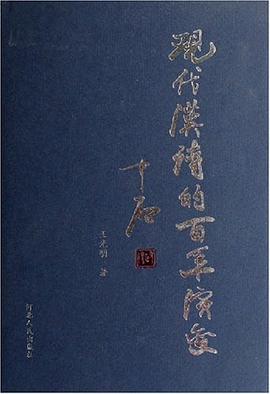 現代漢詩的百年演變
王光明 著
河北人民出版社